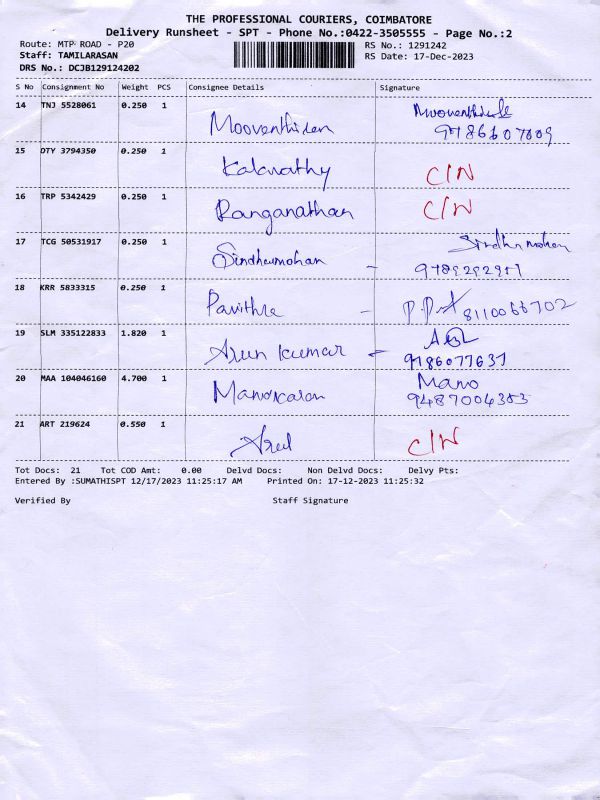 THE PROFESSIONAL COURIERS, COIMBATORE
Delivery Runsheet - SPT - Phone No.:0422-3505555 - Page No.:2
Route: MTP ROAD - P20 RS No.: 1291242
Staff: TAMILARASAN RS Date: 17-Dec-2023
DRS No.: DCJB129124202
S No Consignment No Weight PCS Consignee Details Signature
14 TNJ 5528061 0.250 1
Mooventhiran
15 DTY 3794350 0.250 1
Kalavathy C/N
16 TRP 5342429 0.250 1 C/N
Ranganathan
17 TCG 50531917 0.250 1 Sindhu mohan
Sindhumohan -
18 KRR 5833315 0.250 1
Pavithra - 8110066702
19 SLM 335122833 1.820 1
Arun kumar - 9786077637
20 MAA 104046160 4.700 1 Mano
Manokaran 9487004353
21 ART 219624 0.550 1
Arul C/N
Tot Docs: 21 Tot COD Amt: 0.00 Delvd Docs: Non Delvd Docs: Delvy Pts:
Entered By :SUMATHISPT 12/17/2023 11:25:17 AM Printed On: 17-12-2023 11:25:32
Verified By Staff Signature